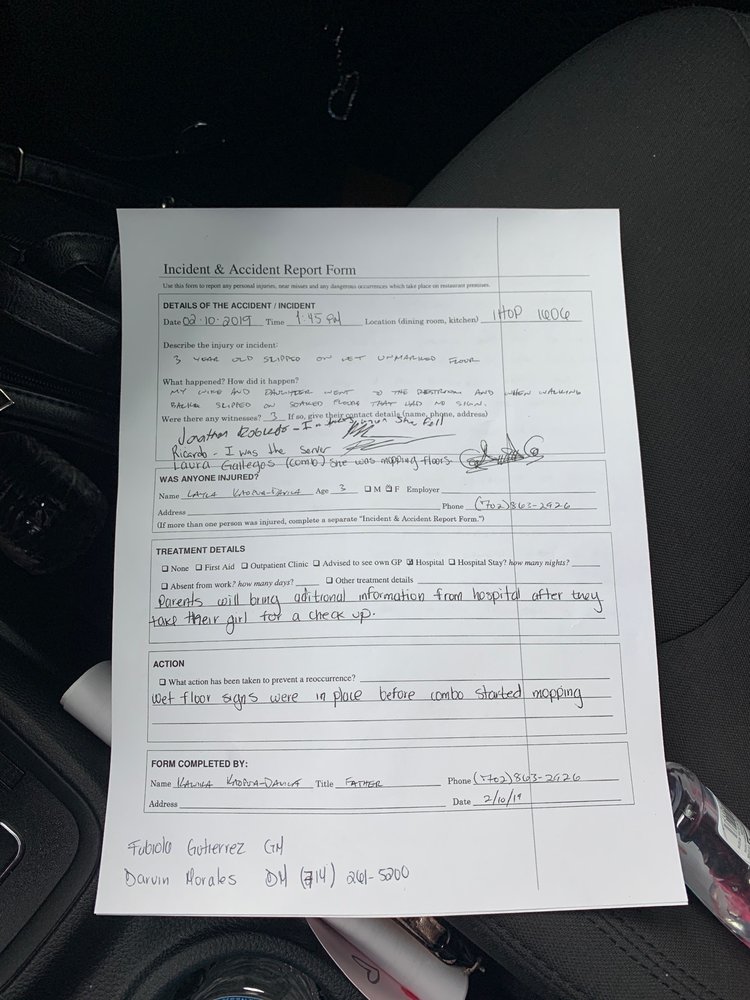 Incident & Accident Report Form
Use this form to report any personal injuries, near misses and any dangerous occurrences which take place on restaurant premises.
DETAILS OF THE ACCIDENT / INCIDENT
Date 02-10-2019 Time 1:45 PM Location (dining room, kitchen) IHOP 1606
Describe the injury or incident:
3 YEAR OLD SLIPPED ON WET UNMARKED FLOOR
What happened? How did it happen?
MY WIFE AND DAUGHTER WENT TO THE RESTROOM AND WHEN WALKING
BACK SLIPPED ON SOAKED FLOORS THAT HAD NO SIGN.
Were there any witnesses? 3 If so, give their contact details (name, phone, address)
Jonathan Robledo - when She Fell
Ricardo - I was the server
Laura Gallegos (combo) She was mopping floors.
WAS ANYONE INJURED?
Name LAYLA Age 3 ☐ M ☑ F Employer
Address Phone (702) 863-2926
(If more than one person was injured, complete a separate "Incident & Accident Report Form.")
TREATMENT DETAILS
☐ None ☐ First Aid ☐ Outpatient Clinic ☐ Advised to see own GP ☑ Hospital ☐ Hospital Stay? how many nights?
☐ Absent from work? how many days? ☐ Other treatment details
Parents will bring aditional information from hospital after they
take their girl for a check up.
ACTION
☐ What action has been taken to prevent a reoccurrence?
wet floor signs were in place before combo started mopping
FORM COMPLETED BY:
Name Title FATHER Phone (702) 863-2926
Address Date 2/10/19
Fabiola Gutierrez GM
Darvin Morales DM (714) 261-5200